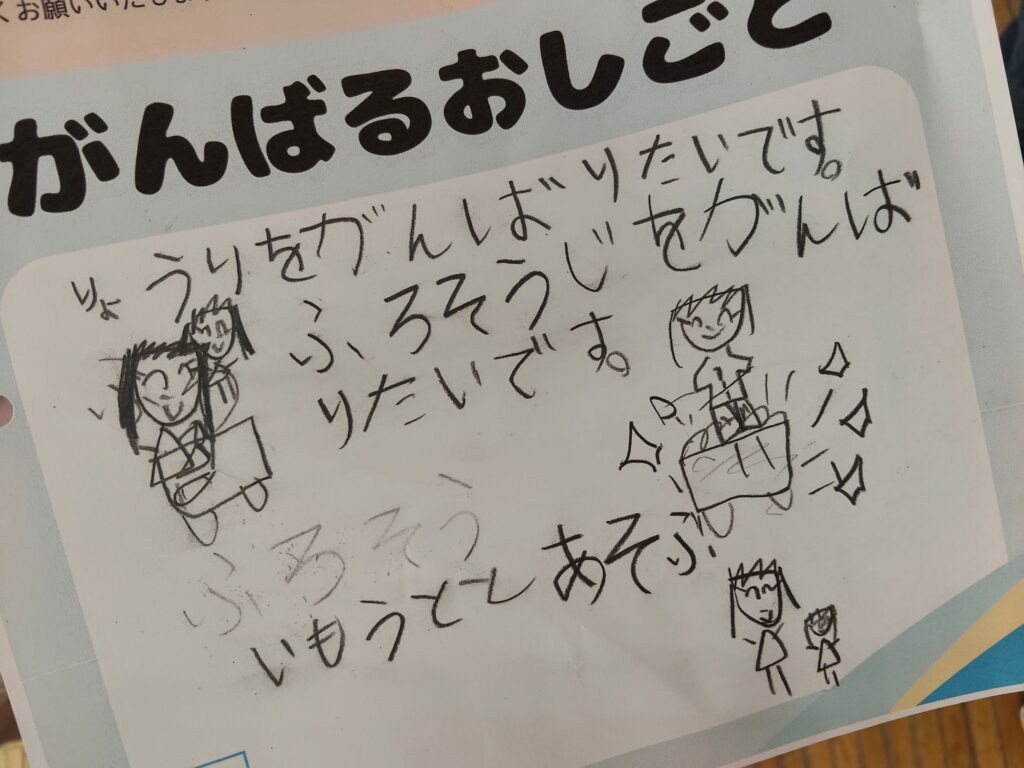 くお願いいたしま
がんばるおしごと
りょうりをがんばりたいです。
ふろそうじをがんば
りたいです。
ふろそう
いもうととあそぶ